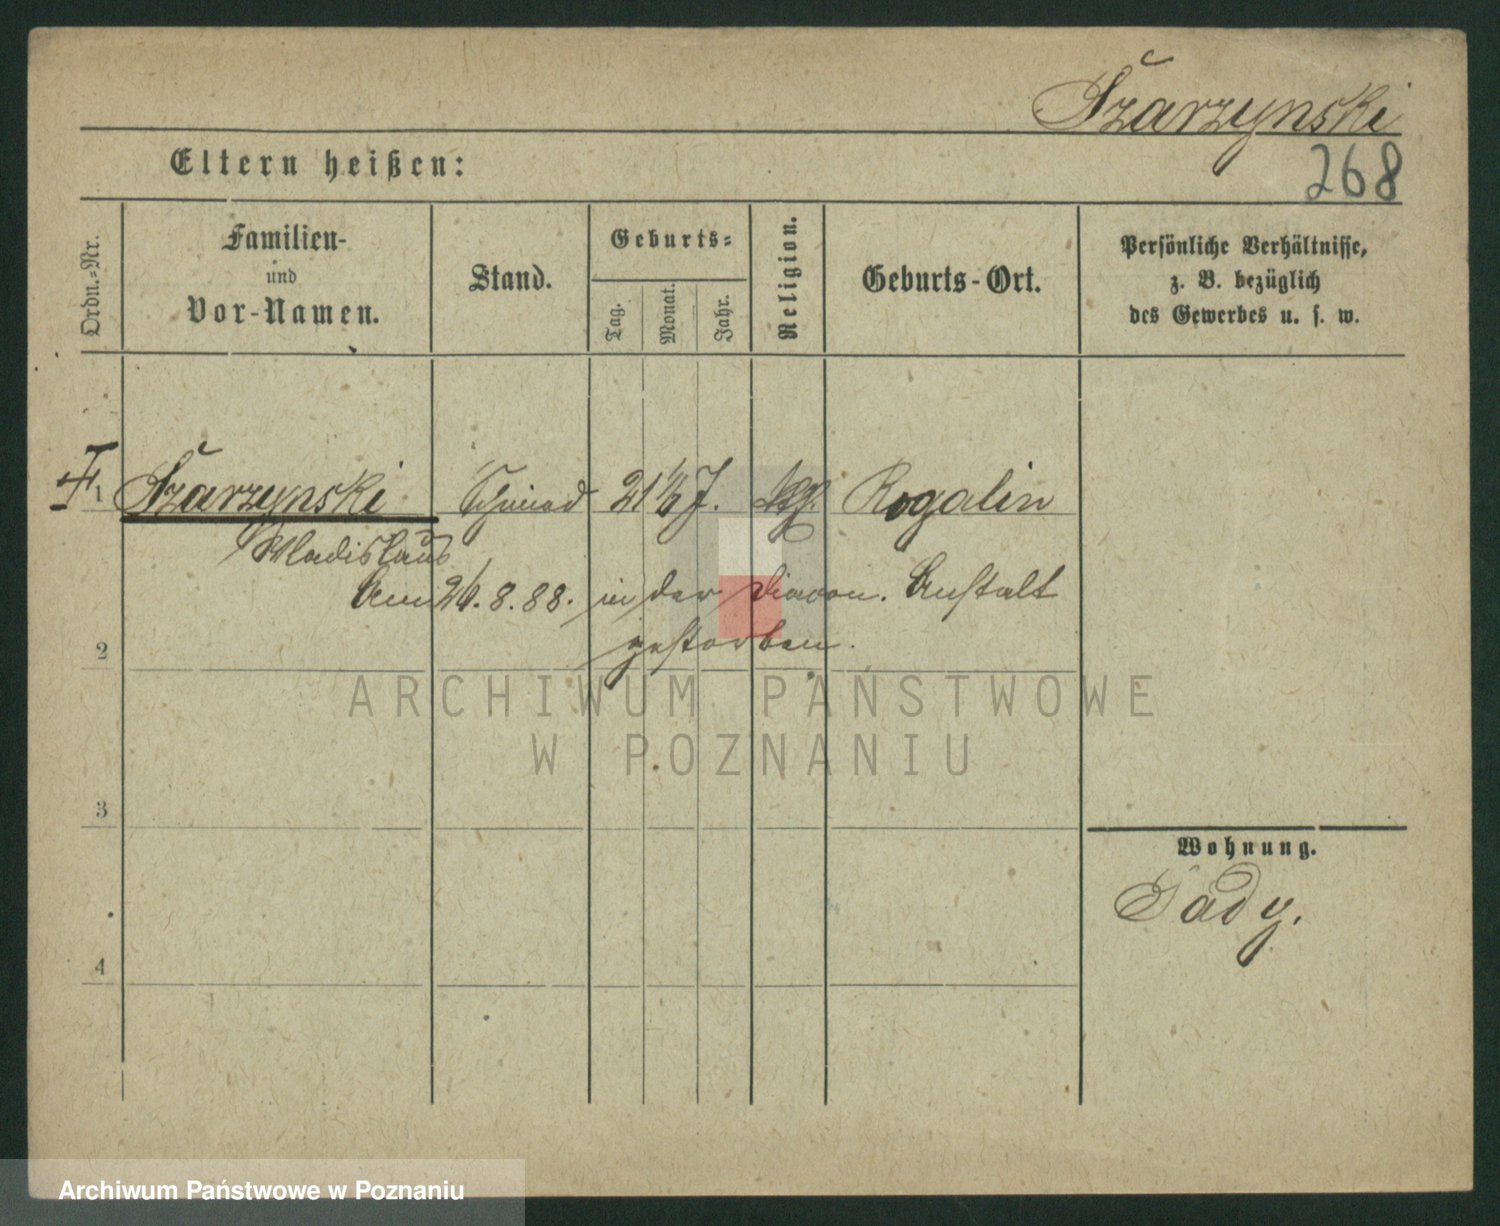 Szarzynski
268
Eltern heißen:
Ordn.-Nr.
Familien-
und
Vor-Namen.
Stand.
Geburts-
Tag.
Monat.
Jahr.
Religion.
Geburts-Ort.
Persönliche Verhältnisse,
z. B. bezüglich
des Gewerbes u. s. w.
1 Szarzynski Schmied 21 J. kth. Rogalin
Wladislaus
Am 26.8.88. in der Diacon. Anstalt
gestorben.
2
ARCHIWUM PAŃSTWOWE
W POZNANIU
3
Wohnung.
Sady.
4
Archiwum Państwowe w Poznaniu